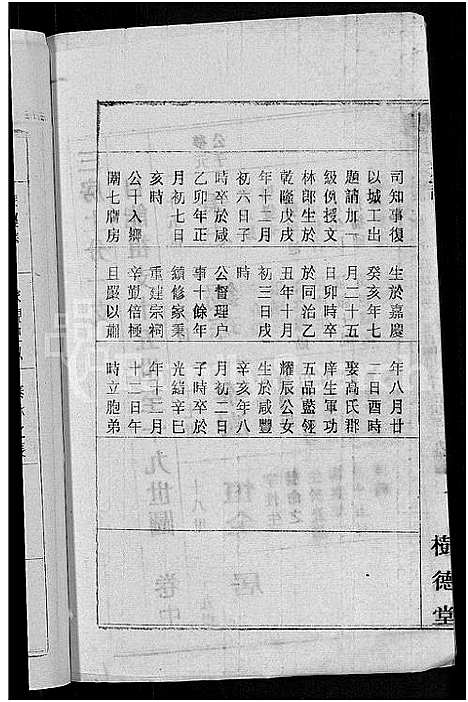 司知事復
以城工出
題請加一
級例授文
林郎生於
乾隆戊戌
年十二月
初六日子
時卒於咸
乙卯年正
月初七日
亥時
公十入鄉
闈七膺房
生於嘉慶
癸亥年七
月二十五
日卯時卒
於同治乙
丑年十月
初三日戌
時
公督理户
事十餘年
續修家秉
重建宗祠
辛勤倍極
且嚴以肅
年八月廿
二日酉時
娶高氏郡
庠生軍功
五品藍翎
耀辰公女
生於咸豐
辛亥年八
月初二日
子時卒於
光緒辛巳
年十二月
十三日午
時立胞弟
樹德堂